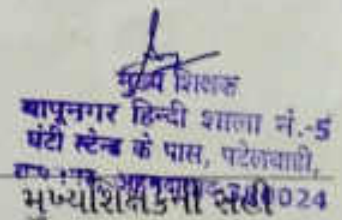 मुख्य शिक्षक
बापूनगर हिन्दी शाला नं.-5
घंटी स्टेन्ड के पास, पटेलवाडी,
अहमदाबाद 024
મુખ્યશિક્ષકની સહી